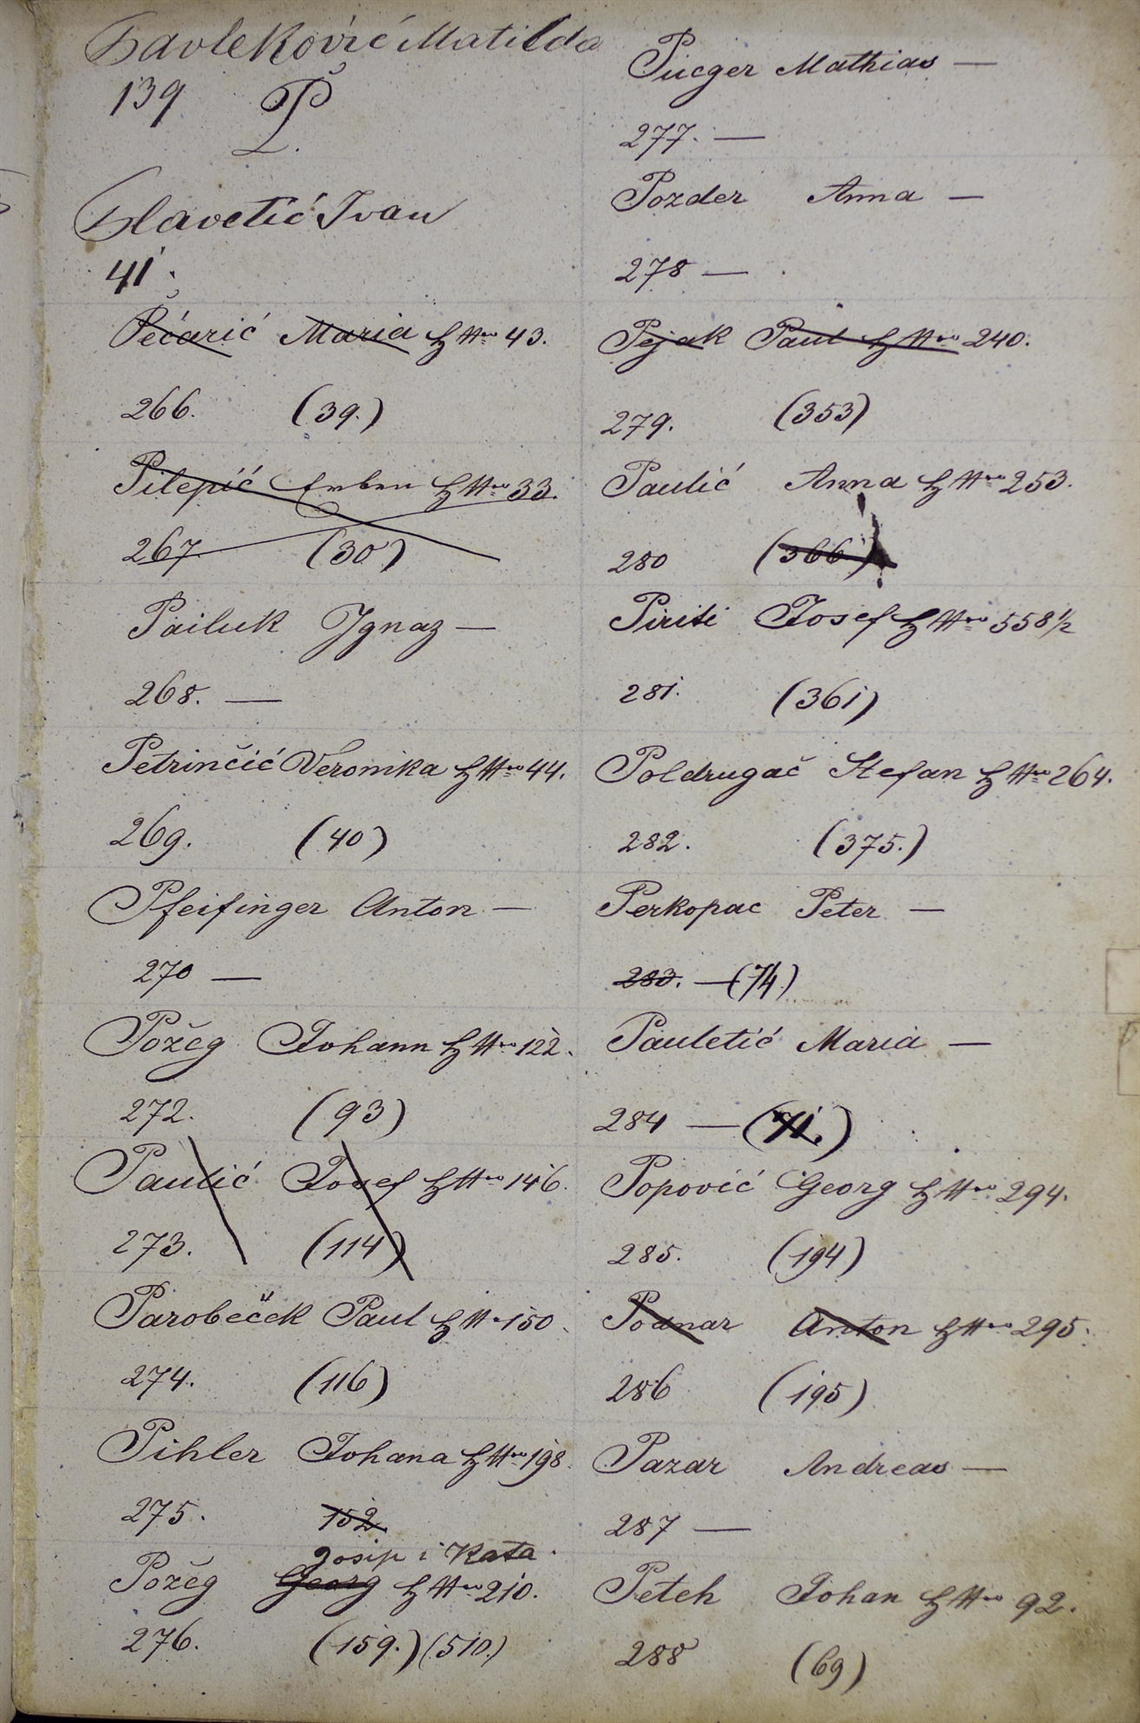 Pavleković Matilda
139 P.
Slavetić Ivan
41.
Pečarić Maria H Nro 43.
266. (39.)
Pilepić Erben H Nro 33.
267. (30)
Pailuk Ignaz —
268. —
Petrinčić Veronika H Nro 44.
269. (40)
Pfeifinger Anton —
270 —
Požeg Johann H Nro 122.
272. (93)
Paulić Josef H Nro 146.
273. (114)
Parobeček Paul H N. 150.
274. (116)
Pihler Johana H Nro 198.
275. 152
Josip i Kata.
Požeg Georg H Nro 210.
276. (159.) (510.)
Pucger Mathias —
277. —
Pozder Anna —
278 —
Pejak Paul H Nro 240.
279. (353)
Paulić Anna H Nro 253.
280 (366)
Piriti Josef H Nro 558½
281. (361)
Poldrugač Stefan H Nro 264.
282. (375.)
Perkopac Peter —
283. — (74.)
Pauletić Maria —
284 — (71.)
Popović Georg H Nro 294.
285. (194)
Podnar Anton H Nro 295.
286 (195)
Pazar Andreas —
287 —
Peteh Johan H Nro 92.
288 (69)